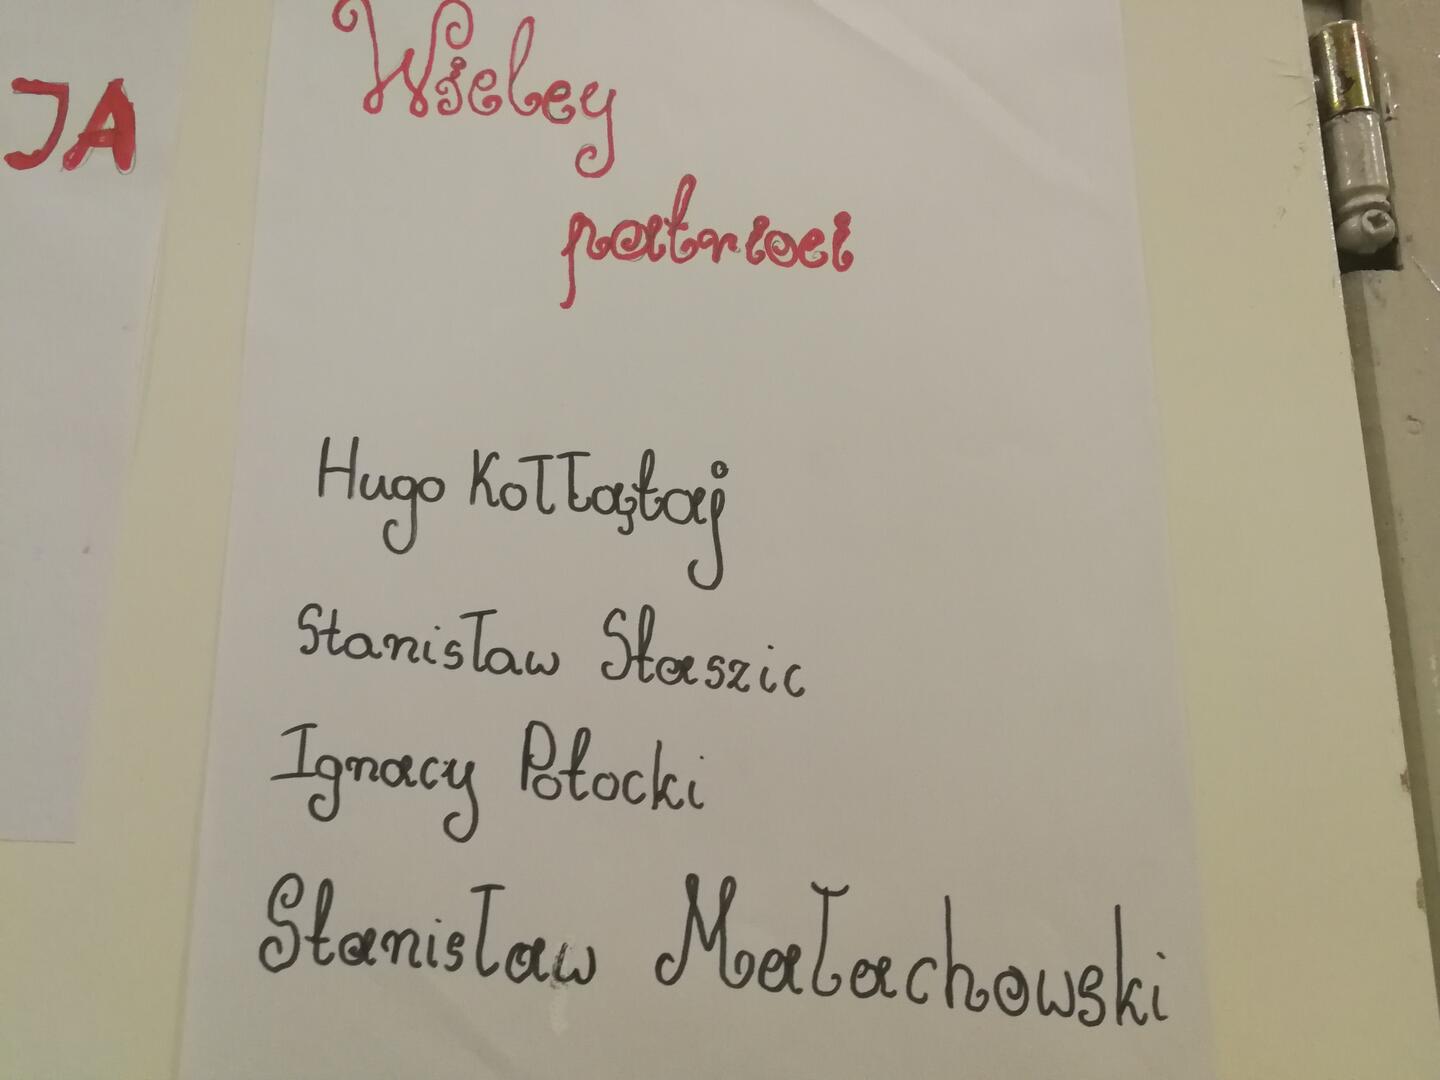 JA
Wielcy
patrioci
Hugo Kołłątaj
Stanisław Staszic
Ignacy Potocki
Stanisław Małachowski